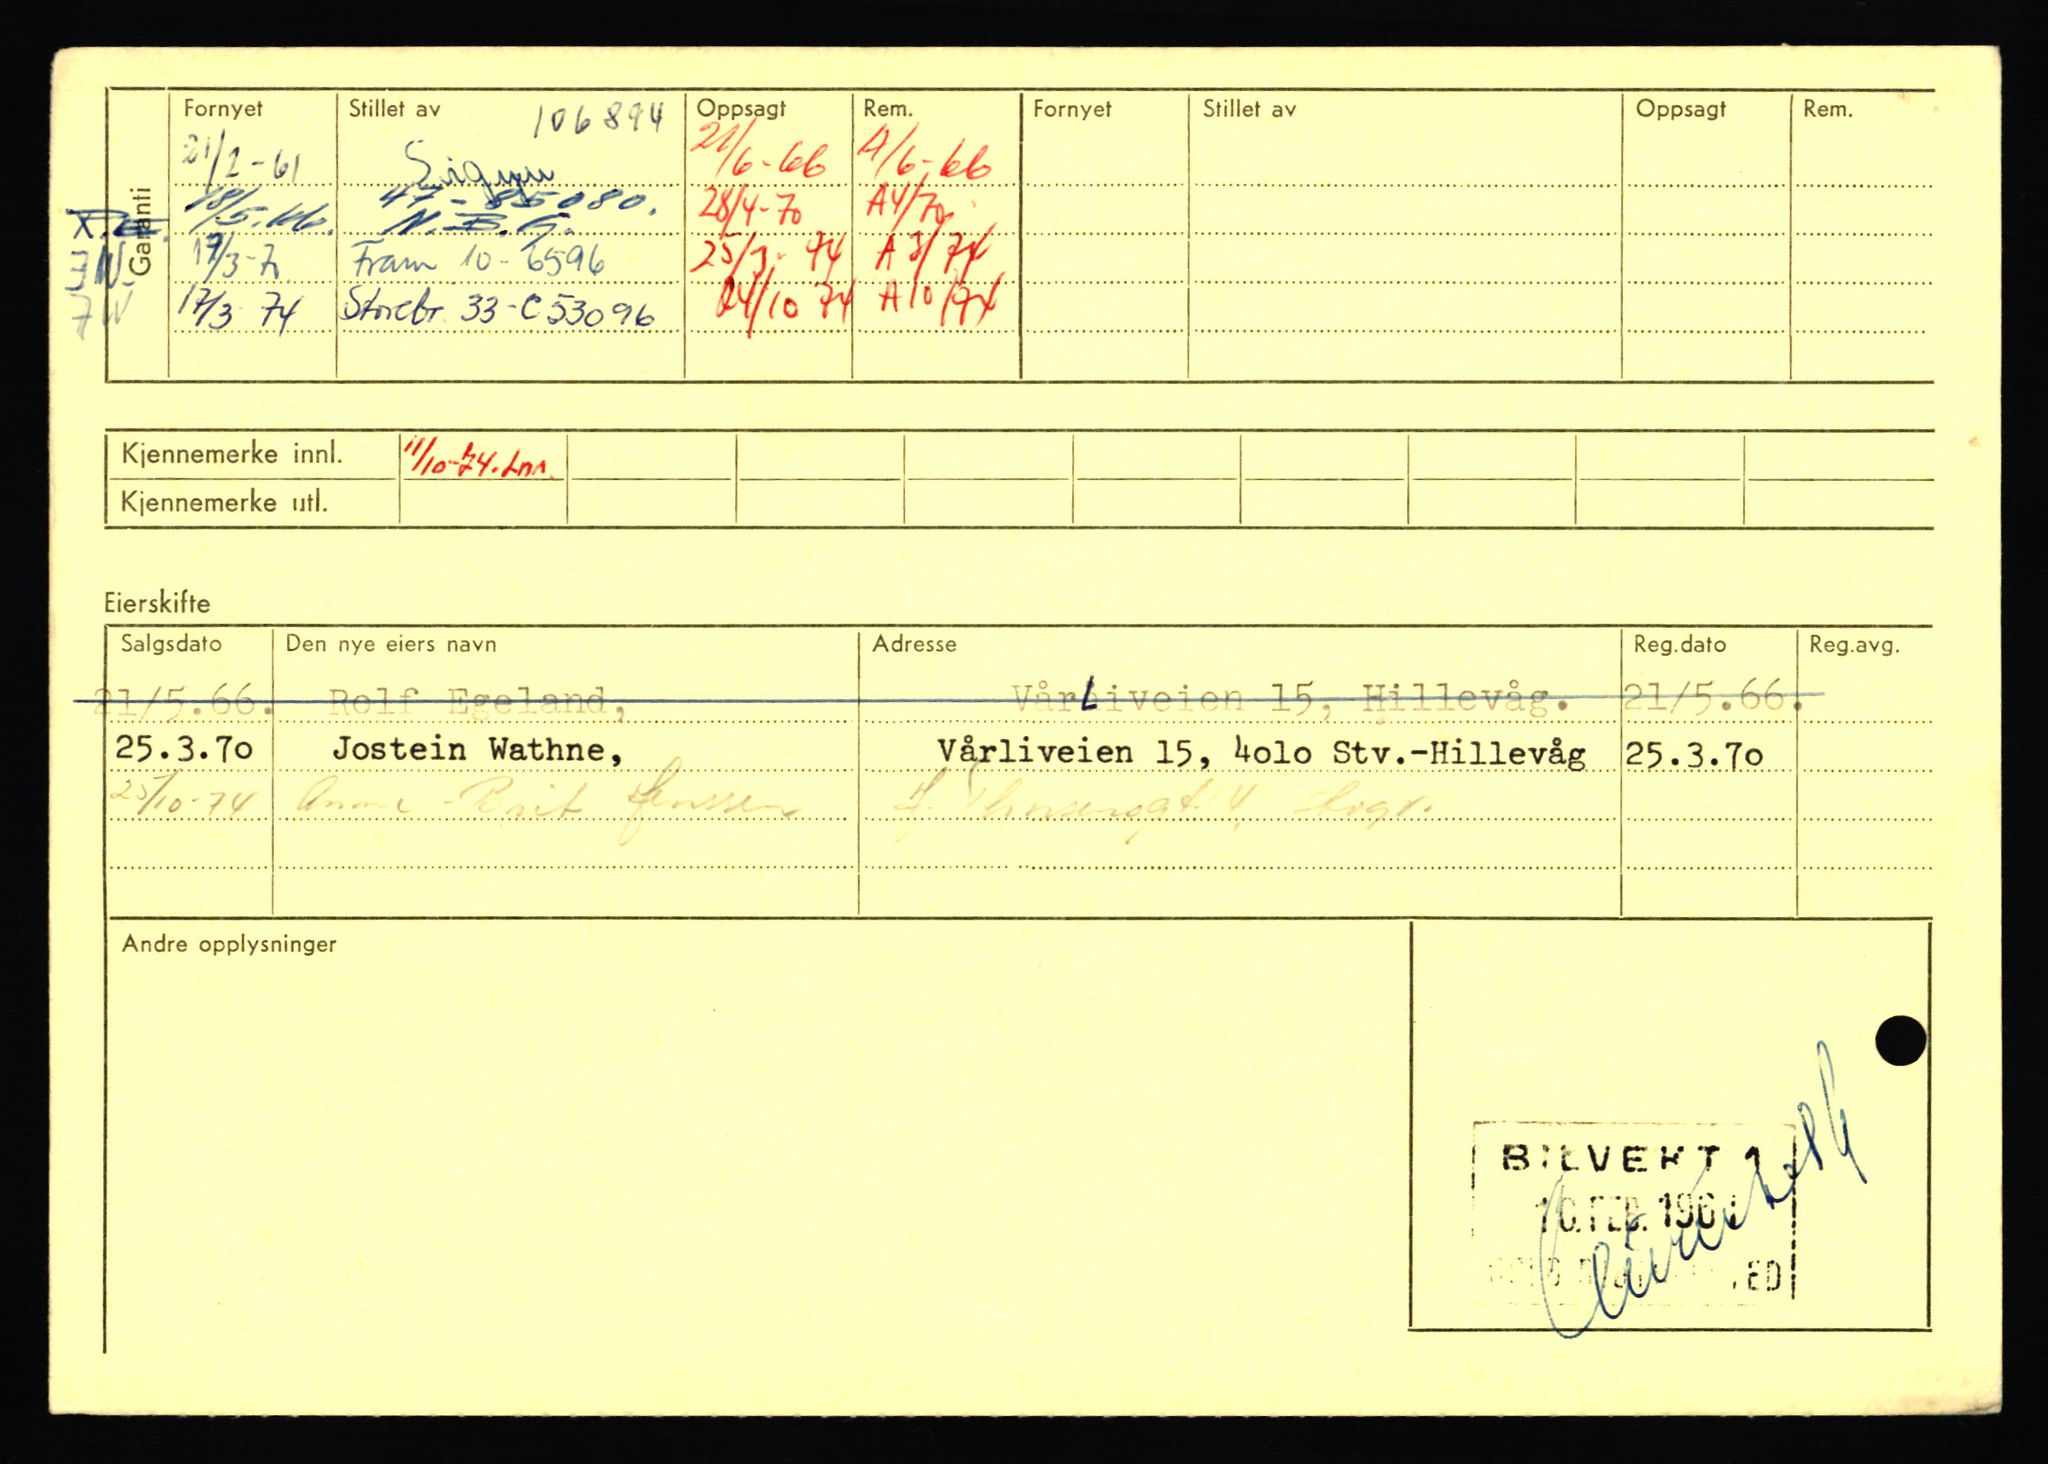 Fornyet Stillet av 106894 Oppsagt Rem. Fornyet Stillet av Oppsagt Rem.
Garanti
21/2-61 Sigyn 21/6-66 A/6-66
R.E. 18/5.66. 47-85080. N.B.G. 28/4-70 A4/70
JW. 17/3-7 Fram 10-6596 25/3-74 A 3/74
JW 17/3 74 Storebr. 33-C53096 24/10 74 A 10/74
Kjennemerke innl. 11/10-74.
Kjennemerke utl.
Eierskifte
Salgsdato Den nye eiers navn Adresse Reg.dato Reg.avg.
21/5.66. Rolf Egeland, Vårliveien 15, Hillevåg. 21/5.66.
25.3.70 Jostein Wathne, Vårliveien 15, 4olo Stv.-Hillevåg 25.3.70
25/10-74 Anne-Brit Jenssen
Andre opplysninger
BILVERT 1
10. FEB. 196